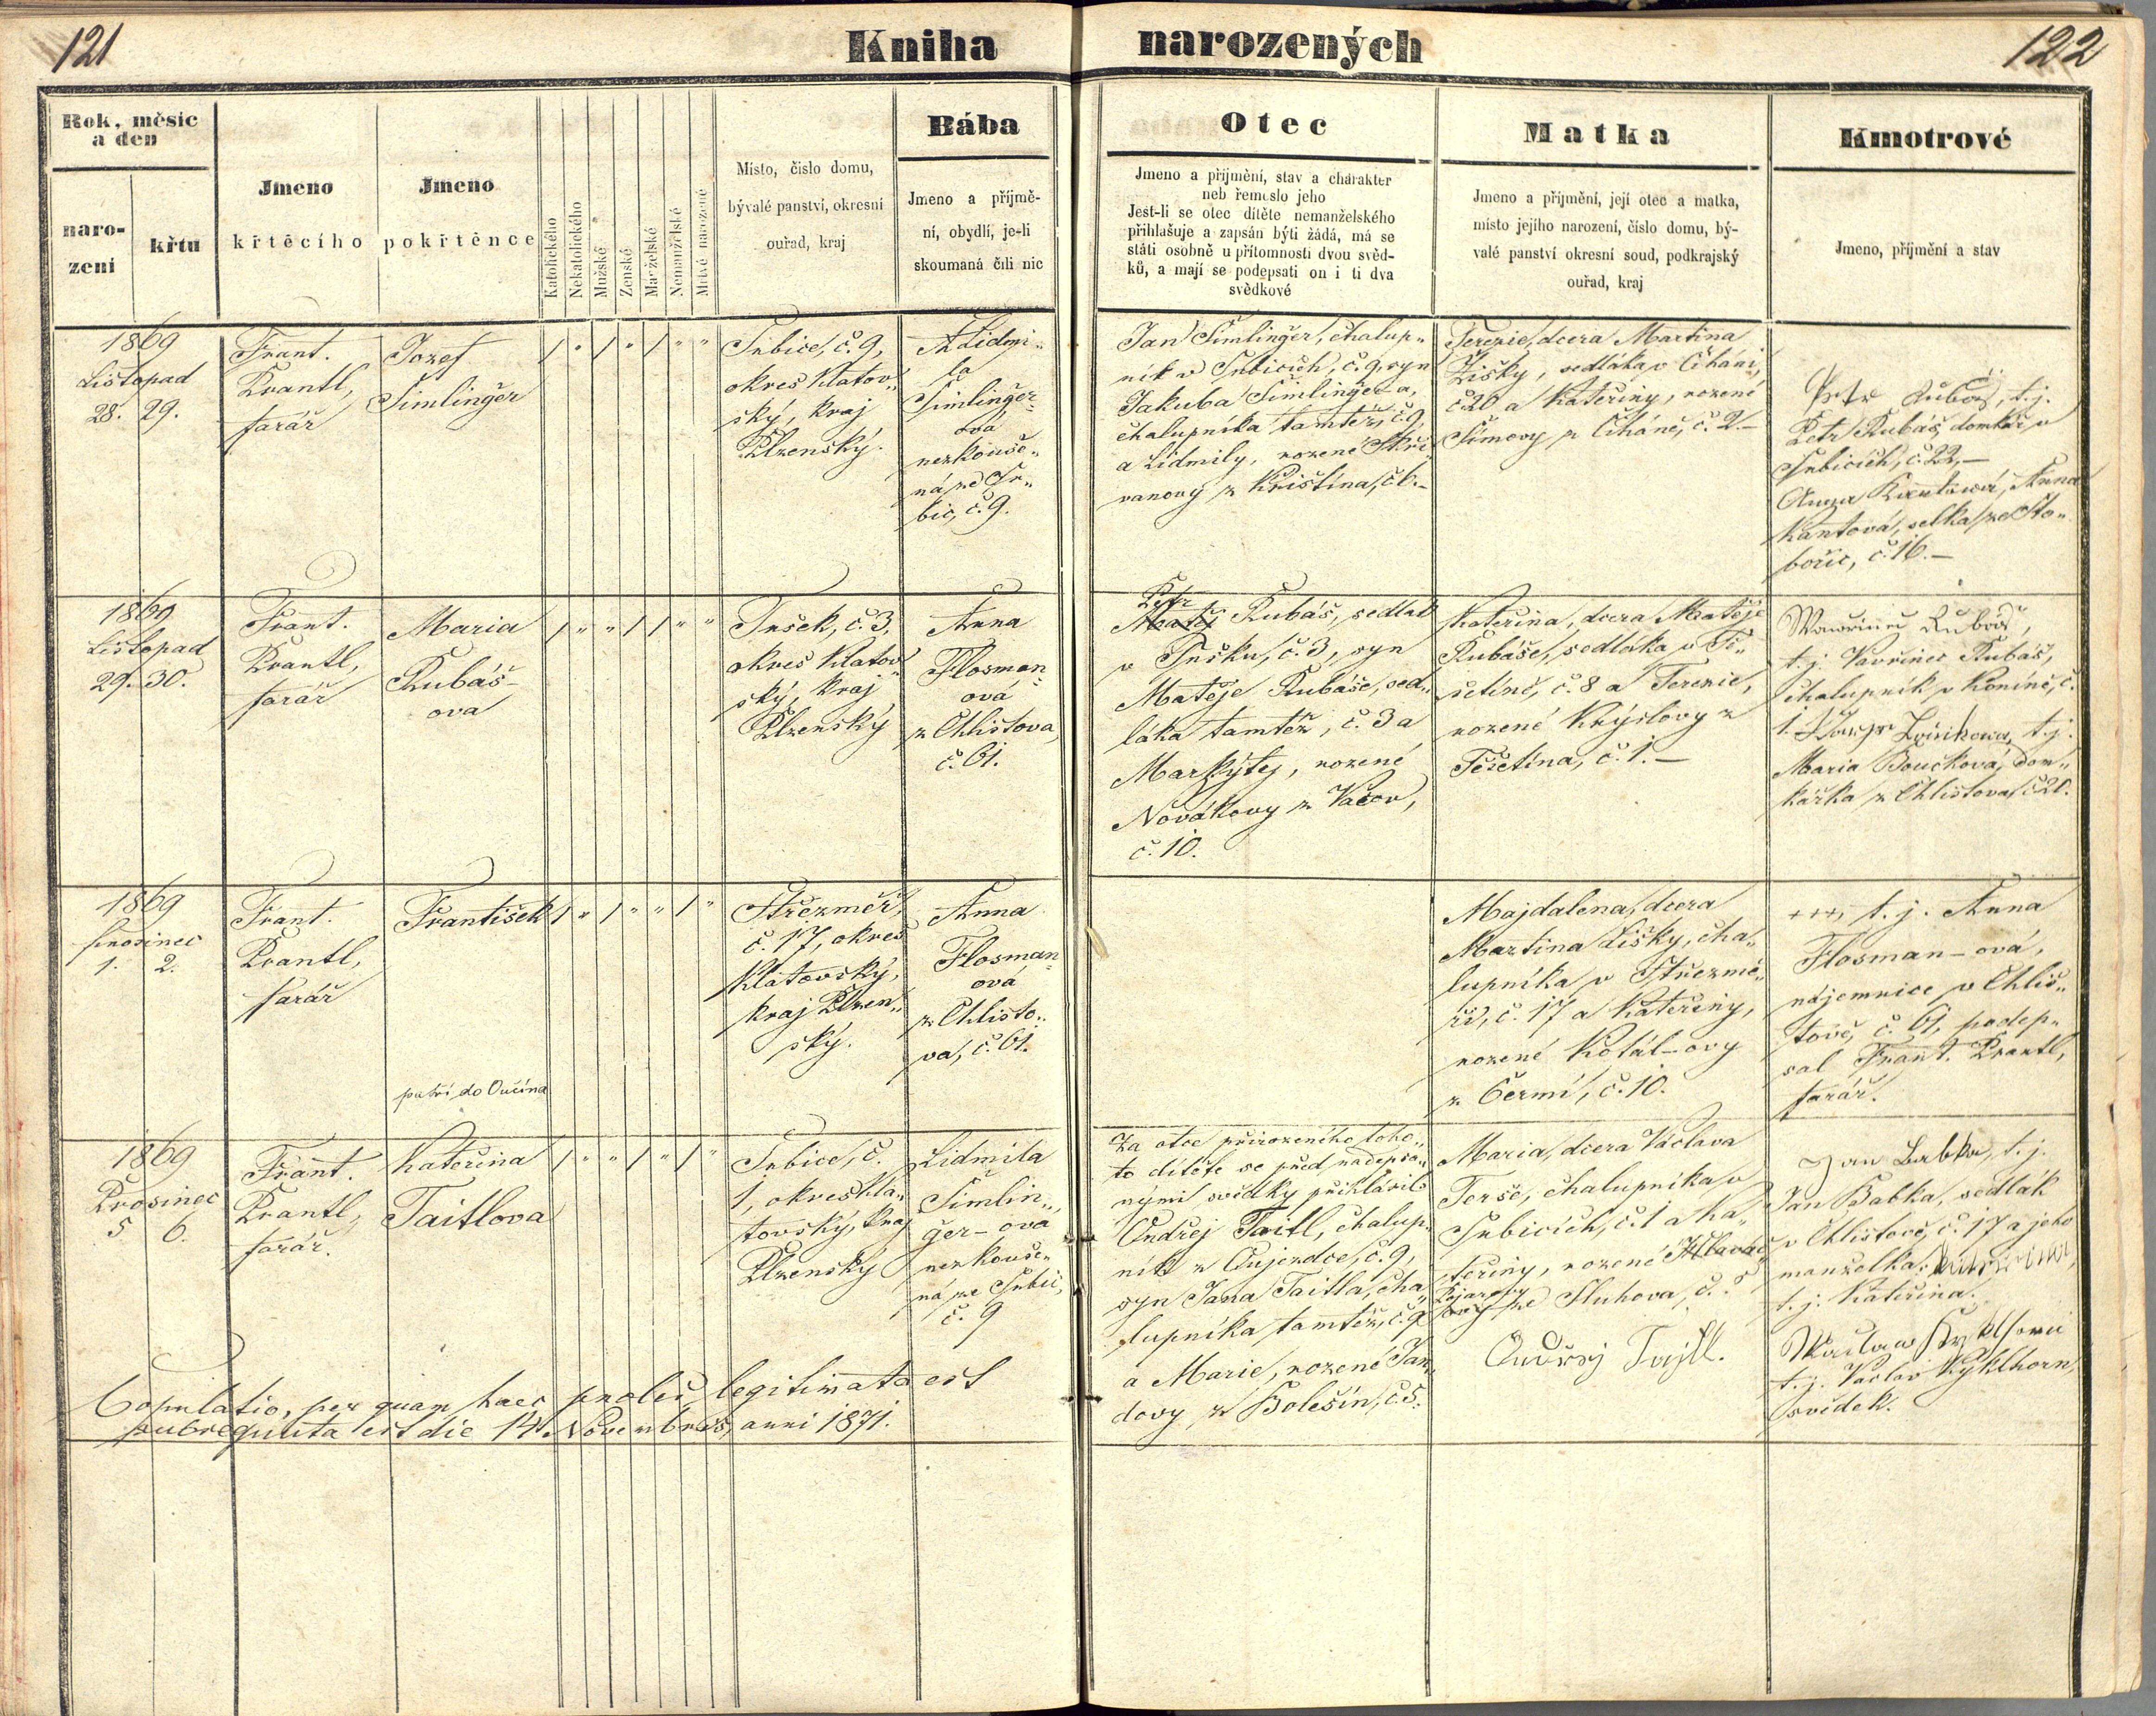 121
Kniha
narozených
122
Rok, měsíc
a den
naro-
zení
křtu
Jmeno
křtěcího
Jmeno
pokřtěnce
Katolického
Nekatolického
Mužské
Ženské
Manželské
Nemanželské
Mrtvě narozené
Místo, číslo domu,
bývalé panství, okresní
ouřad, kraj
Bába
Jmeno a příjmě-
ní, obydlí, je-li
skoumaná čili nic
Otec
Jmeno a přijmění, stav a charakter
neb řemeslo jeho
Jest-li se otec dítěte nemanželského
přihlašuje a zapsán býti žádá, má se
státi osobně u přítomnosti dvou svěd-
ků, a mají se podepsati on i ti dva
svědkové
Matka
Jmeno a přijmění, její otec a matka,
místo jejího narození, číslo domu, bý-
valé panství okresní soud, podkrajský
ouřad, kraj
Kmotrové
Jmeno, příjmění a stav
1869
Listopad
28. 29.
Frant.
Krantl,
farář
Jozef
Šimlinger
/ " / " / " "
Srbice, č. 9,
okres Klatov„
ský, kraj
Plzenský.
Lidmi„
la
Šimlinger-
ova
nezkouše„
ná ze Sr„
bic, č. 9.
Jan Šimlinger, chalup„
ník v Srbicích, č. 9, syn
Jakuba Šimlinger-a,
chalupníka tamtéž, č. 9,
a Lidmily, rozené Skři„
vanovy z Křištína, č. 6.–
Terezie, dcera Martina
Žišky, sedláka v Číháni,
č. 20 a Kateřiny, rozené
Šimovy z Číháně, č. 2.–
Petr Rubáš, t. j.
Petr Rubáš, domkář v
Srbicích, č. 22,–
Anna Kantová, Anna
Kantová, selka ze Sto„
bořic, č. 16.–
1869
Listopad
29. 30.
Frant.
Krantl,
farář
Maria
Rubáš-
ova
/ " " / / " "
Tušek, č. 3,
okres Klatov„
ský, kraj
Plzenský
Anna
Flosman-
ová
z Chlistova,
č. 61.
Petr
Matěj Rubáš, sedlák
v Tušku, č. 3, syn
Matěje Rubáše, sed„
láka tamtéž, č. 3 a
Markýty, rozené
Novákovy z Vacov,
č. 10.
Kateřina, dcera Matěje
Rubáše, sedláka v Tě„
šetíně, č. 8 a Terezie,
rozené Krýslovy z
Těšetína, č. 1.–
Wawřinec Rubáš,
t. j. Vavřinec Rubáš,
chalupník v Koníně, č.
t. j.
Maria Boučková, dom„
kářka z Chlistova, č. 20.
1869
Prosinec
1. 2.
Frant.
Krantl,
farář
František
patří do Oučína
/ " / " " / "
Střezměř,
č. 17, okres
Klatovský,
kraj Plzen„
ský.
Anna
Flosman-
ová
z Chlisto„
va, č. 61.
Majdalena, dcera
Martina Lišky, cha„
lupníka v Střezmě„
ři, č. 17 a Kateřiny,
rozené Kotál-ovy
z Černí, č. 10.
+++, t. j. Anna
Flosman-ová,
nájemnice v Chlis„
tově, č. 61, podep„
sal Frant. Krantl,
farář.
1869
Prosinec
5 6.
Frant.
Krantl,
farář.
Kateřina
Taitlova
/ " " / " / "
Srbice, č.
1, okres Kla„
tovský, kraj
Plzenský
Lidmila
Šimlin„
ger-ova
nezkouše„
ná ze Srbic,
č. 9
Za otce přirozeného toho„
to dítěte se před nadepsa„
nými svědky přihlásil
Ondřej Taitl, chalup„
ník z Oujezdce, č. 9,
syn Jana Taitla, cha„
lupníka tamtéž, č. 9
a Marie, rozené Jan„
dovy, z Bolešín, č. 5.
Maria, dcera Václava
Terše, chalupníka v
Srbicích, č. 1 a Ka„
teřiny, rozené Hlaváč
ze Sluhova, č. 5
Ondřej Tajtl.
Jan Babka, t. j.
Jan Babka, sedlák
v Chlistově, č. 17 a jeho
manželka: Kateřina,
t. j. Kateřina.
Waclaw Kyklhorn
t. j. Vaclav Kyklhorn,
svědek.
Copulatio, per quam haec proles legitimata est
subsequuta est die 14. Novembris, anni 1871.